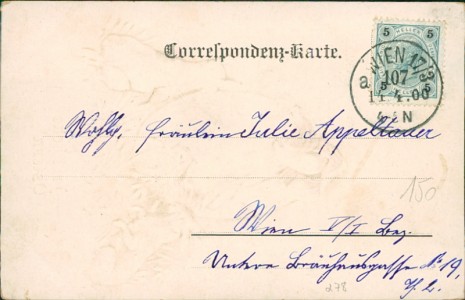 Correspondenz-Karte.
5 HELLER 5
WIEN 17/3
107
a
14.4.00
Wohlg. Fräulein Julie Appeltauer
150
Wien V/I Bez.
Untere Bräuhausgasse No 19,
278